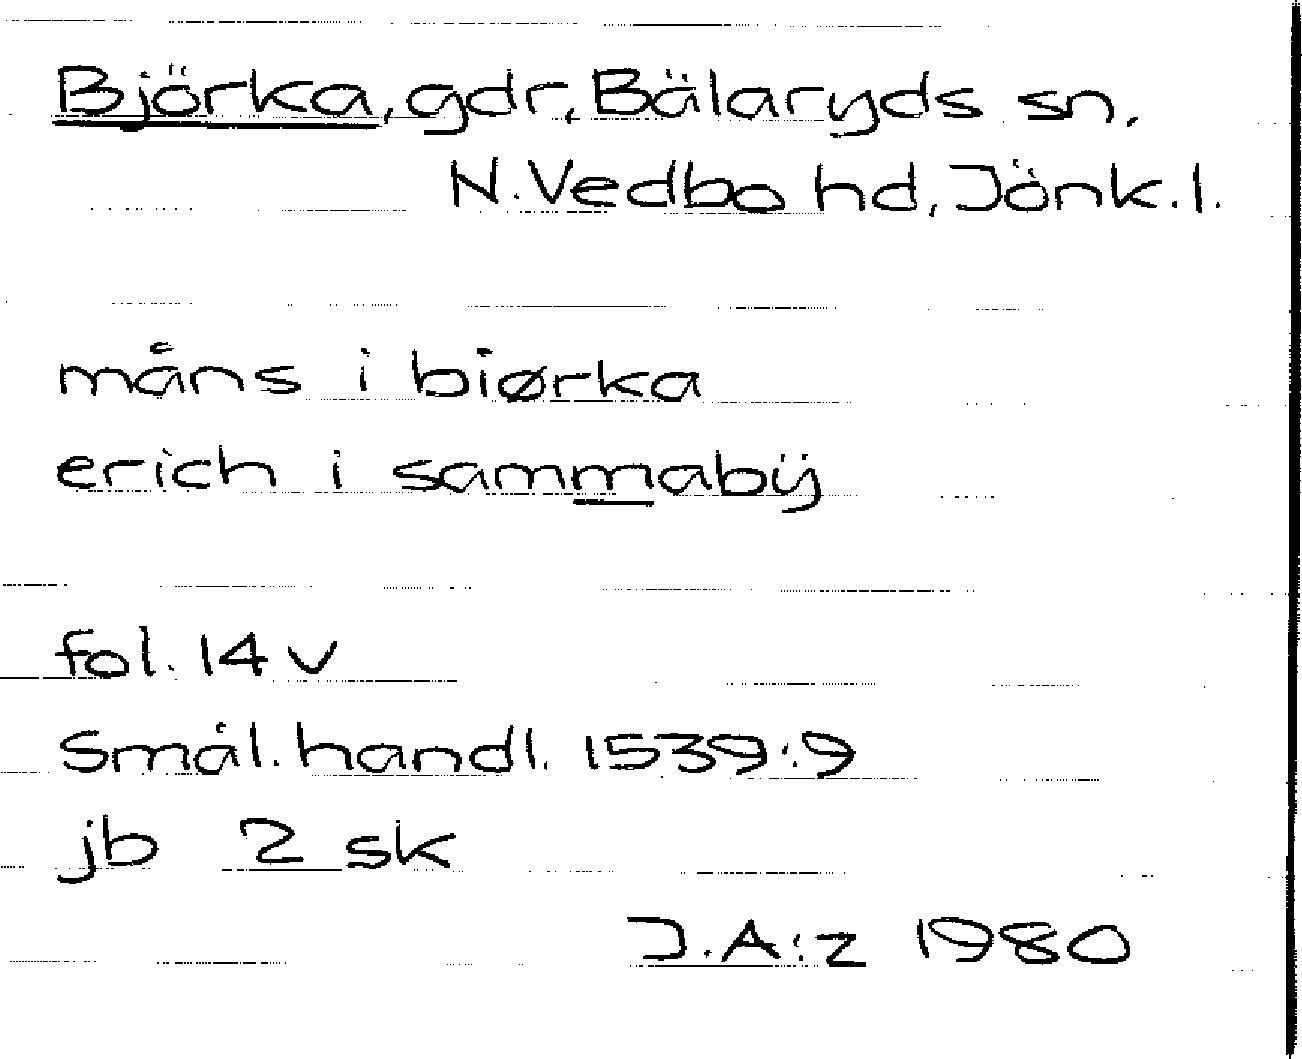 Björka, gdr, Bälaryds sn,
N. Vedbo hd, Jönk. l.
måns i biørka
erich i sammabÿ
fol. 14 v
Smål. handl. 1539:9
jb 2 sk
J.A:z 1980